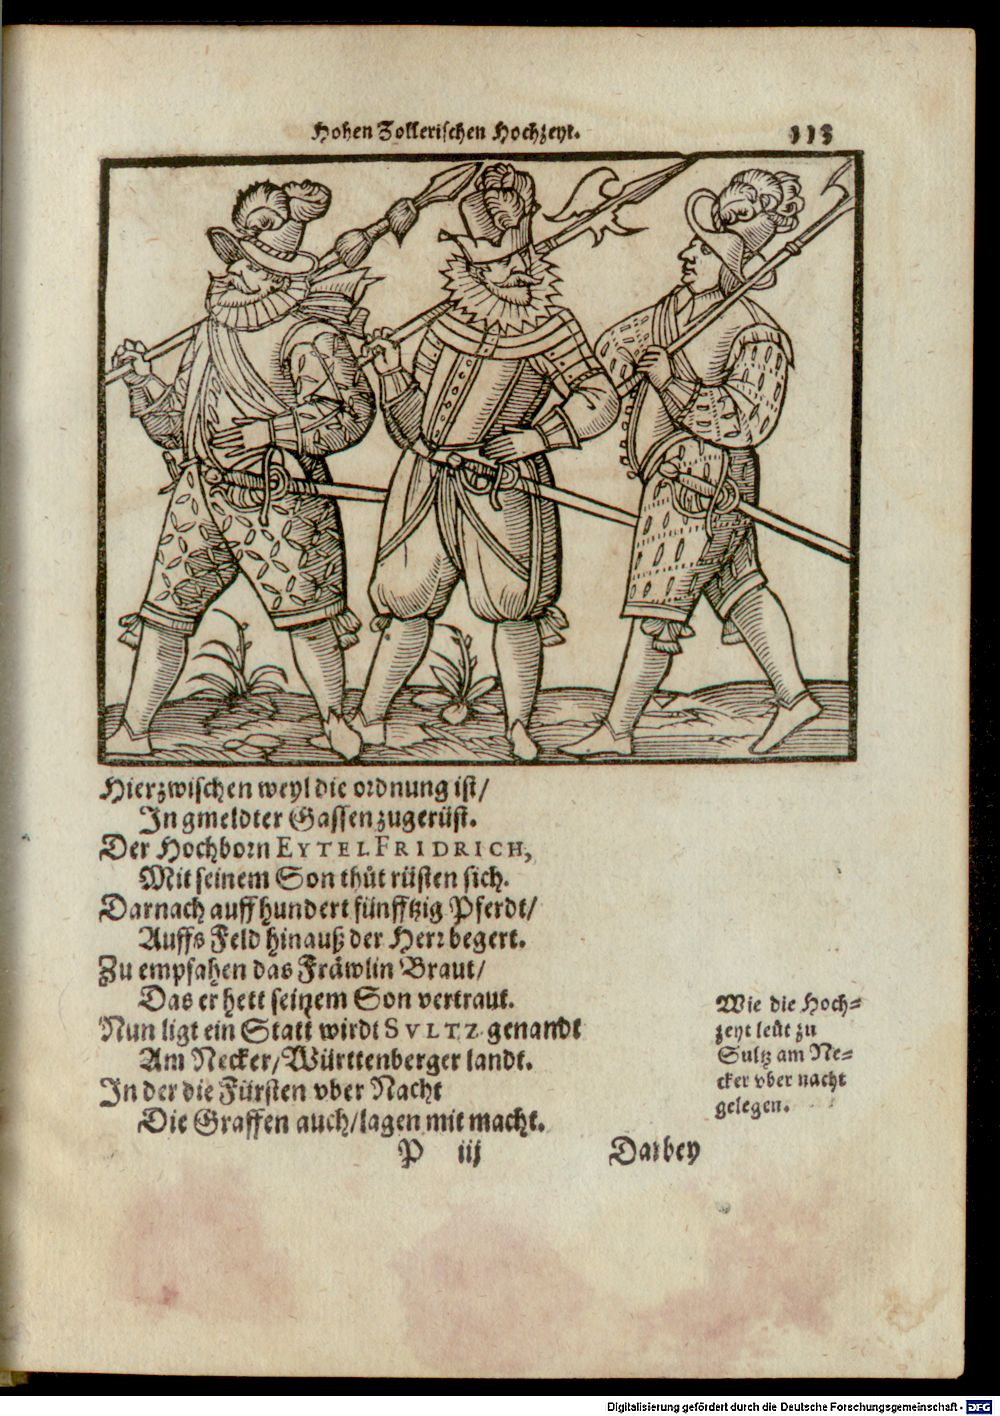 Hohen Zollerischen Hochzeyt.
113
Hierzwischen weyl die ordnung ist/
In gmeldter Gassen zugerüst.
Der Hochborn EYTELFRIDRICH,
Mit seinem Son thůt rüsten sich.
Darnach auff hundert fünfftzig Pferdt/
Auffs Feld hinauß der Herr begert.
Zu empfahen das Fräwlin Braut/
Das er hett seinem Son vertraut.
Nun ligt ein Statt wirdt SVLTZ genandt
Am Necker/Württenberger landt.
In der die Fürsten vber Nacht
Die Graffen auch/lagen mit macht.
Wie die Hoch=
zeyt leüt zu
Sultz am Ne=
cker vber nacht
gelegen.
P iij
Darbey
Digitalisierung gefördert durch die Deutsche Forschungsgemeinschaft - DFG